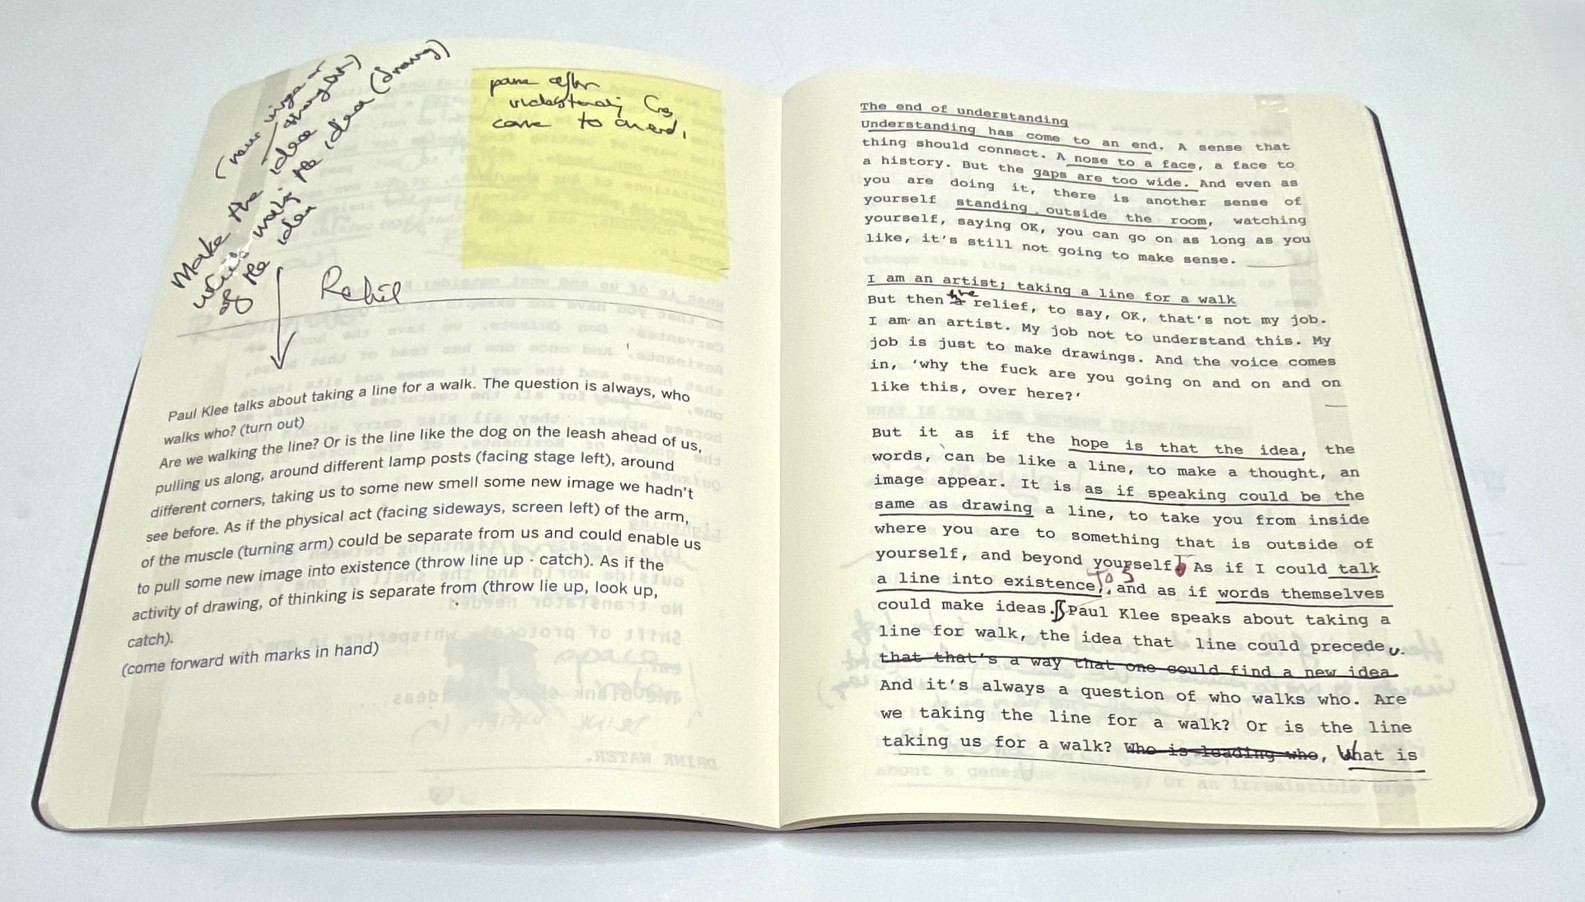 Make the idea
the idea (drawing)
of the idea
pause after
understanding has
come to an end.
Paul Klee talks about taking a line for a walk. The question is always, who
walks who? (turn out)
Are we walking the line? Or is the line like the dog on the leash ahead of us,
pulling us along, around different lamp posts (facing stage left), around
different corners, taking us to some new smell some new image we hadn't
see before. As if the physical act (facing sideways, screen left) of the arm,
of the muscle (turning arm) could be separate from us and could enable us
to pull some new image into existence (throw line up - catch). As if the
activity of drawing, of thinking is separate from (throw lie up, look up,
catch).
(come forward with marks in hand)
DRINK WATER.
The end of understanding
Understanding has come to an end. A sense that
thing should connect. A nose to a face, a face to
a history. But the gaps are too wide. And even as
you are doing it, there is another sense of
yourself standing outside the room, watching
yourself, saying OK, you can go on as long as you
like, it's still not going to make sense.
I am an artist; taking a line for a walk
But then the relief, to say, OK, that's not my job.
I am an artist. My job not to understand this. My
job is just to make drawings. And the voice comes
in, 'why the fuck are you going on and on and on
like this, over here?'
But it as if the hope is that the idea, the
words, can be like a line, to make a thought, an
image appear. It is as if speaking could be the
same as drawing a line, to take you from inside
where you are to something that is outside of
yourself, and beyond yourself. As if I could talk
a line into existence, and as if words themselves
could make ideas. Paul Klee speaks about taking a
line for walk, the idea that line could precede u.
that that's a way that one could find a new idea
And it's always a question of who walks who. Are
we taking the line for a walk? Or is the line
taking us for a walk? Who is leading who, What is